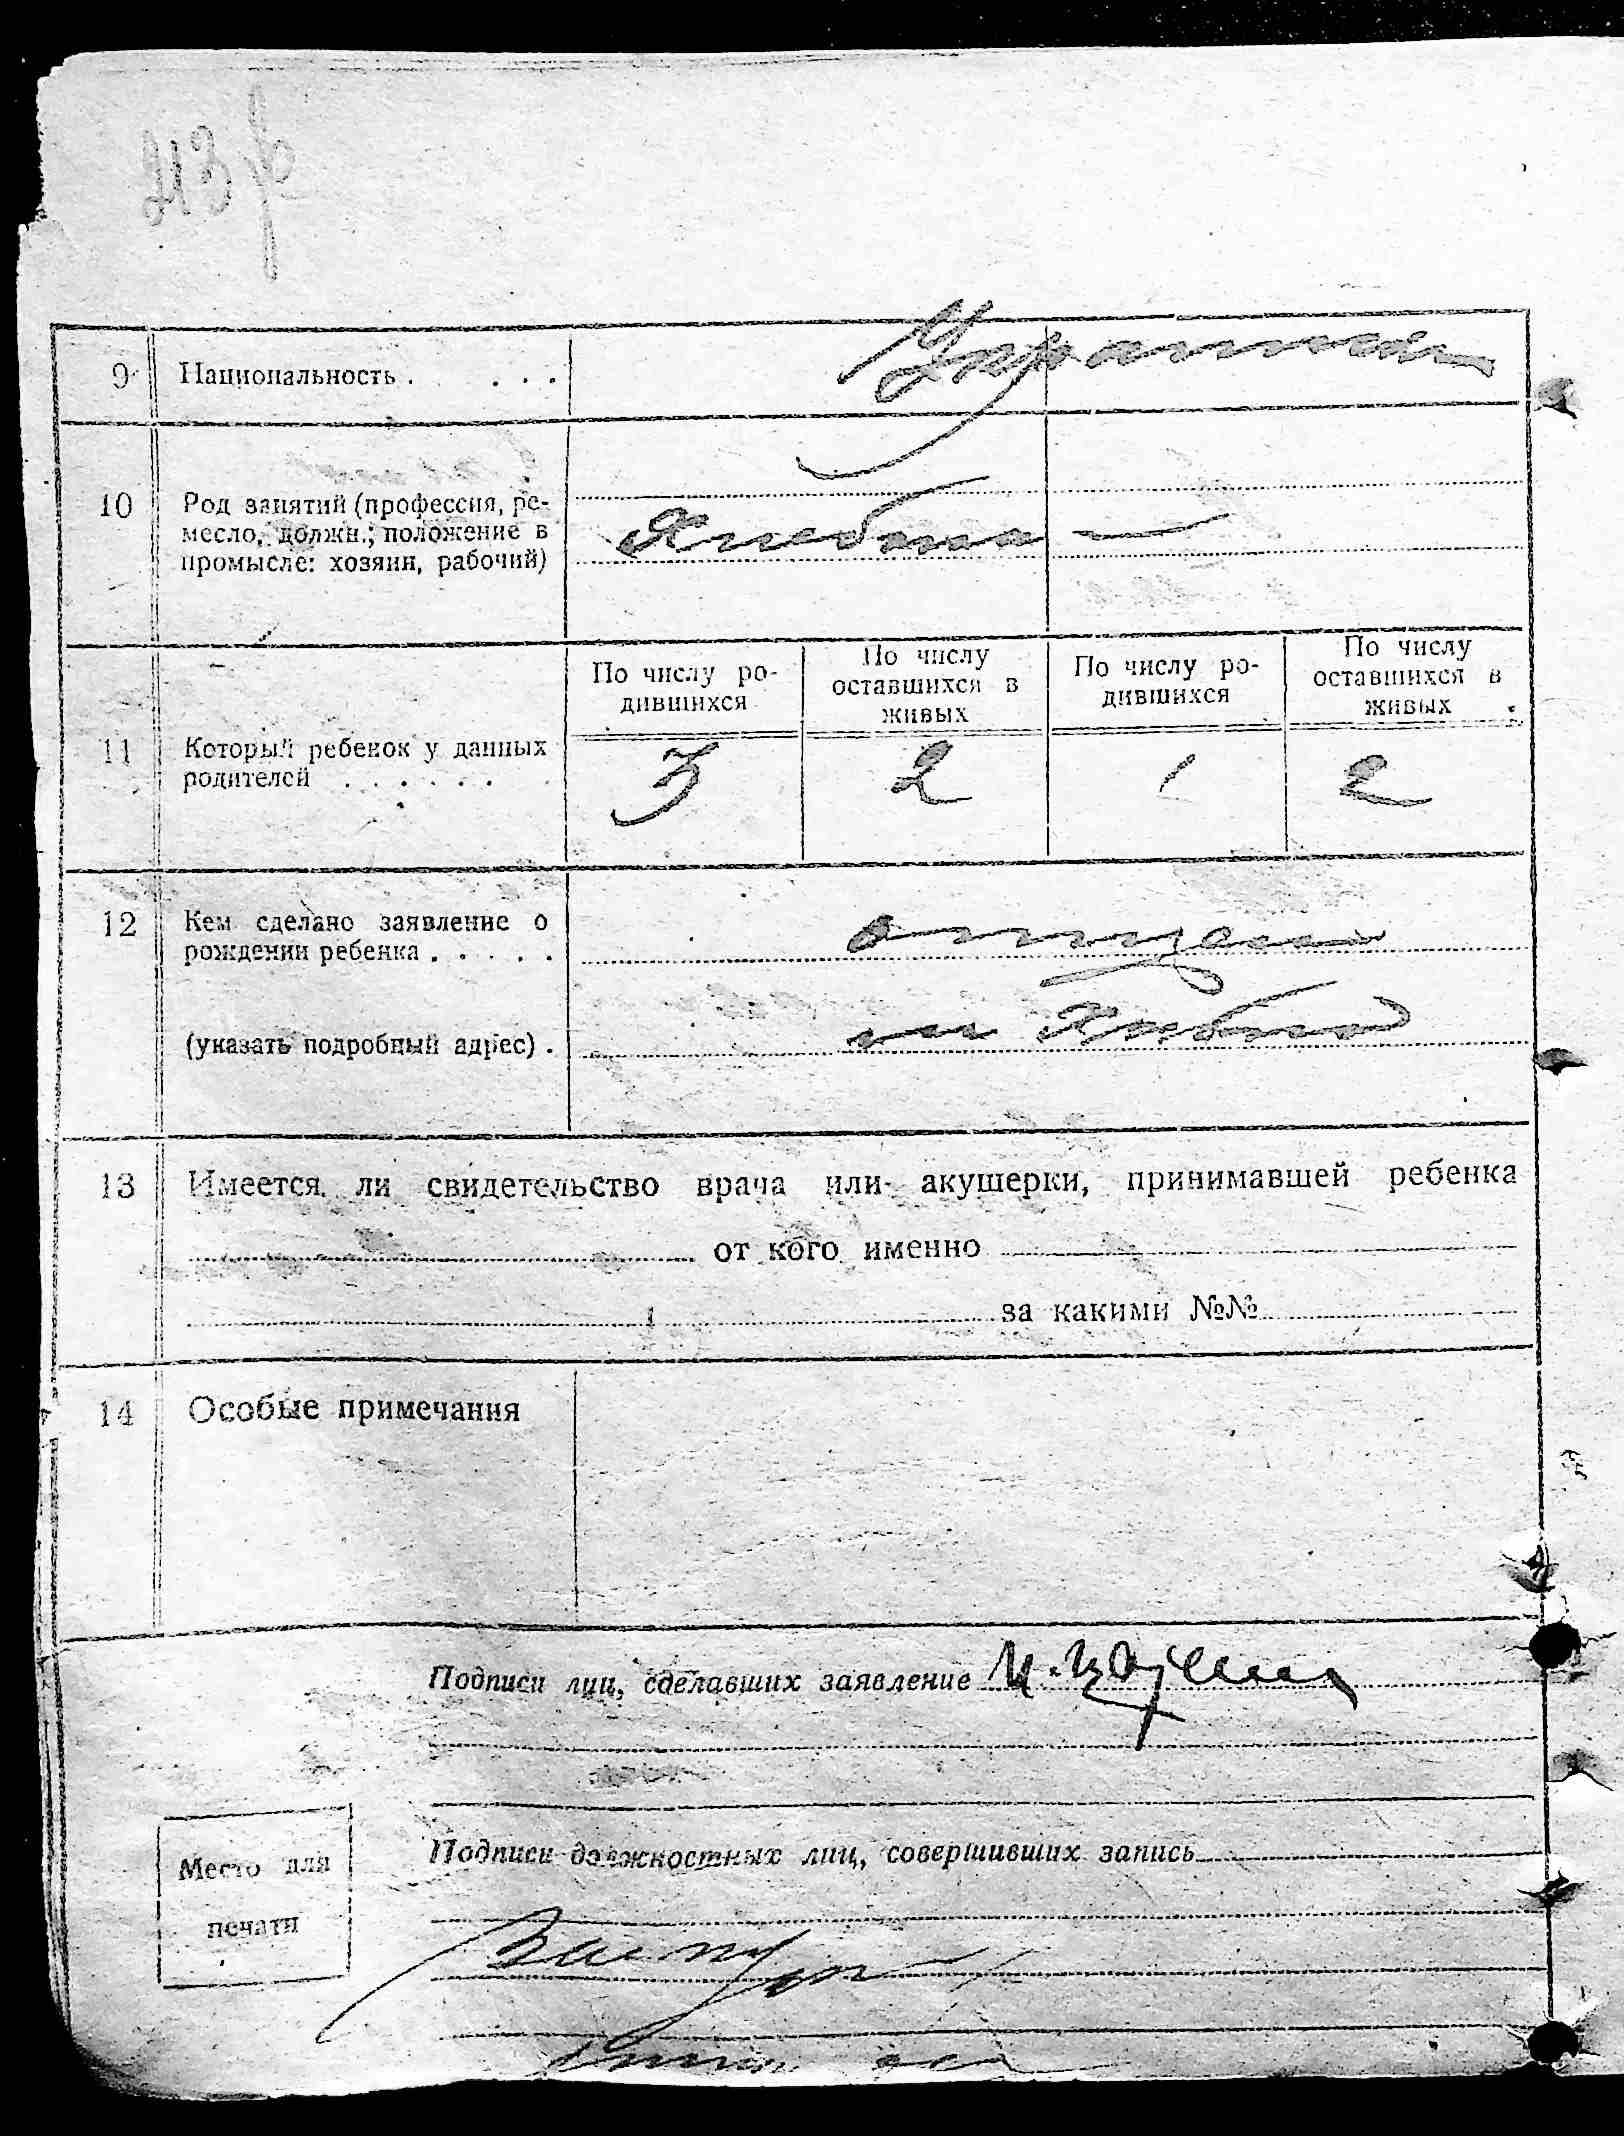 213
9 Национальность . . . .
10 Род занятий (профессия, ре-
месло, должн.; положение в
промысле: хозяин, рабочий)
По числу ро-
дившихся
По числу
оставшихся в
живых
По числу ро-
дившихся
По числу
оставшихся в
живых
11 Который ребенок у данных
родителей . . . . . .
3 2 1 2
12 Кем сделано заявление о
рождении ребенка . . . . .
(указать подробный адрес) .
13 Имеется ли свидетельство врача или акушерки, принимавшей ребенка
от кого именно
за какими №№
14 Особые примечания
Подписи лиц, сделавших заявление
Место для
печати
Подписи должностных лиц, совершивших запись